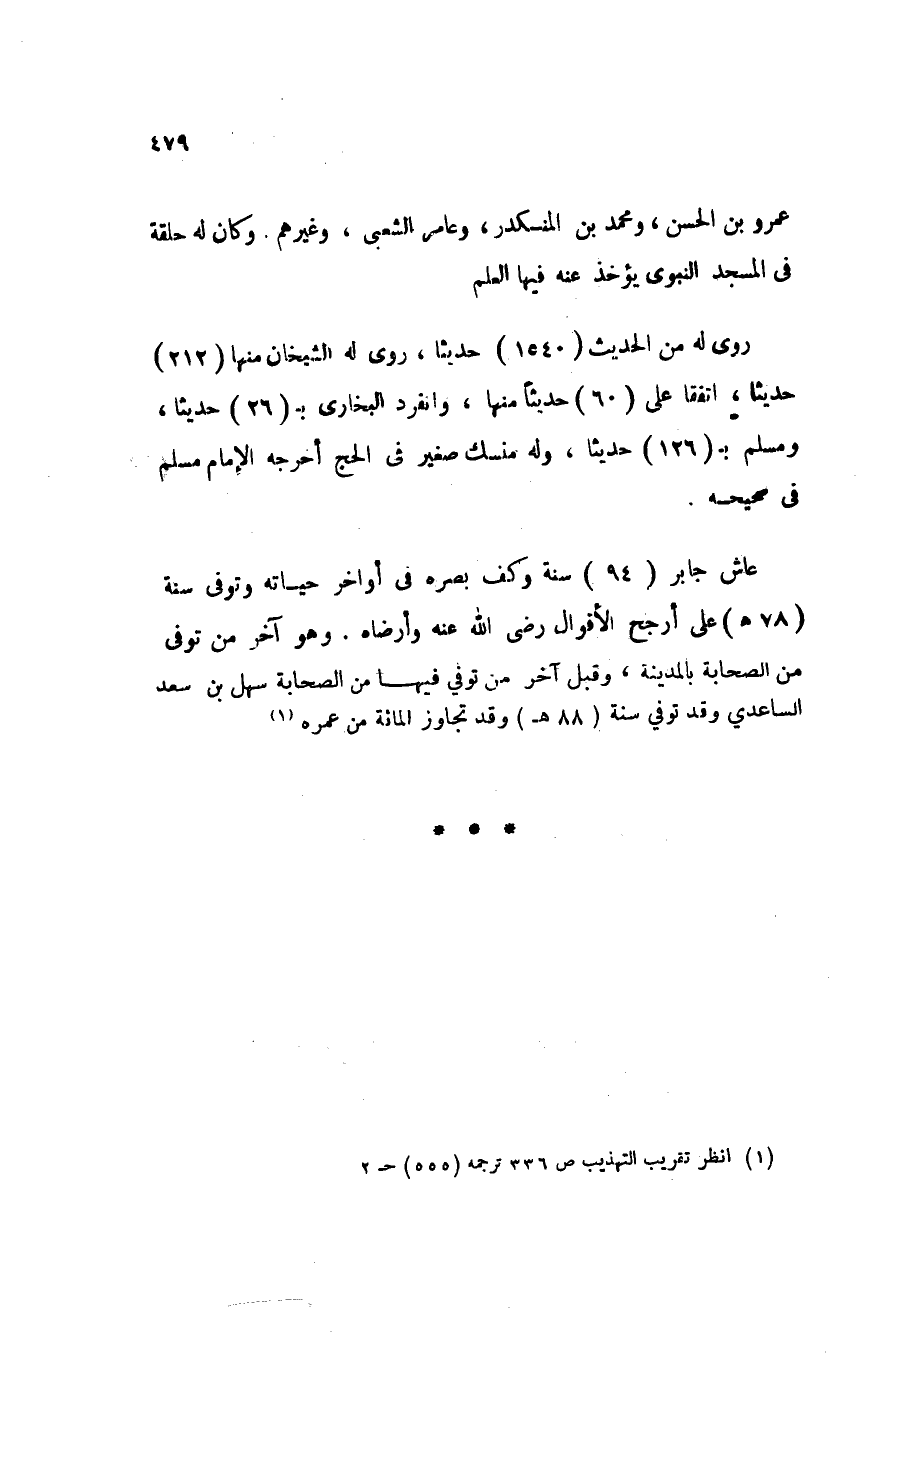 ٤٧٩
عمرو بن الحسن ، ومحمد بن المنكدر ، وعامر الشعبى ، وغيرهم . وكان له حلقة
فى المسجد النبوى يؤخذ عنه فيها العلم
روى له من الحديث ( ١٥٤٠ ) حديثا ، روى له الشيخان منها ( ٢١٢ )
حديثا ، اتفقا على ( ٦٠ ) حديثاً منها ، وانفرد البخارى بـ ( ٢٦ ) حديثا ،
ومسلم بـ ( ١٢٦ ) حديثا ، وله منسك صغير فى الحج أخرجه الإمام مسلم
فى صحيحه .
عاش جابر ( ٩٤ ) سنة وكف بصره فى أواخر حياته وتوفى سنة
( ٧٨ ه ) على أرجح الأقوال رضى الله عنه وأرضاه . وهو آخر من توفى
من الصحابة بالمدينة ، وقبل آخر من توفي فيها من الصحابة سهل بن سعد
الساعدي وقد توفي سنة ( ٨٨ هـ ) وقد تجاوز المائة من عمره (١)
* * *
(١) انظر تقريب التهذيب ص ٣٣٦ ترجمه (٥٥٥) حـ ٢